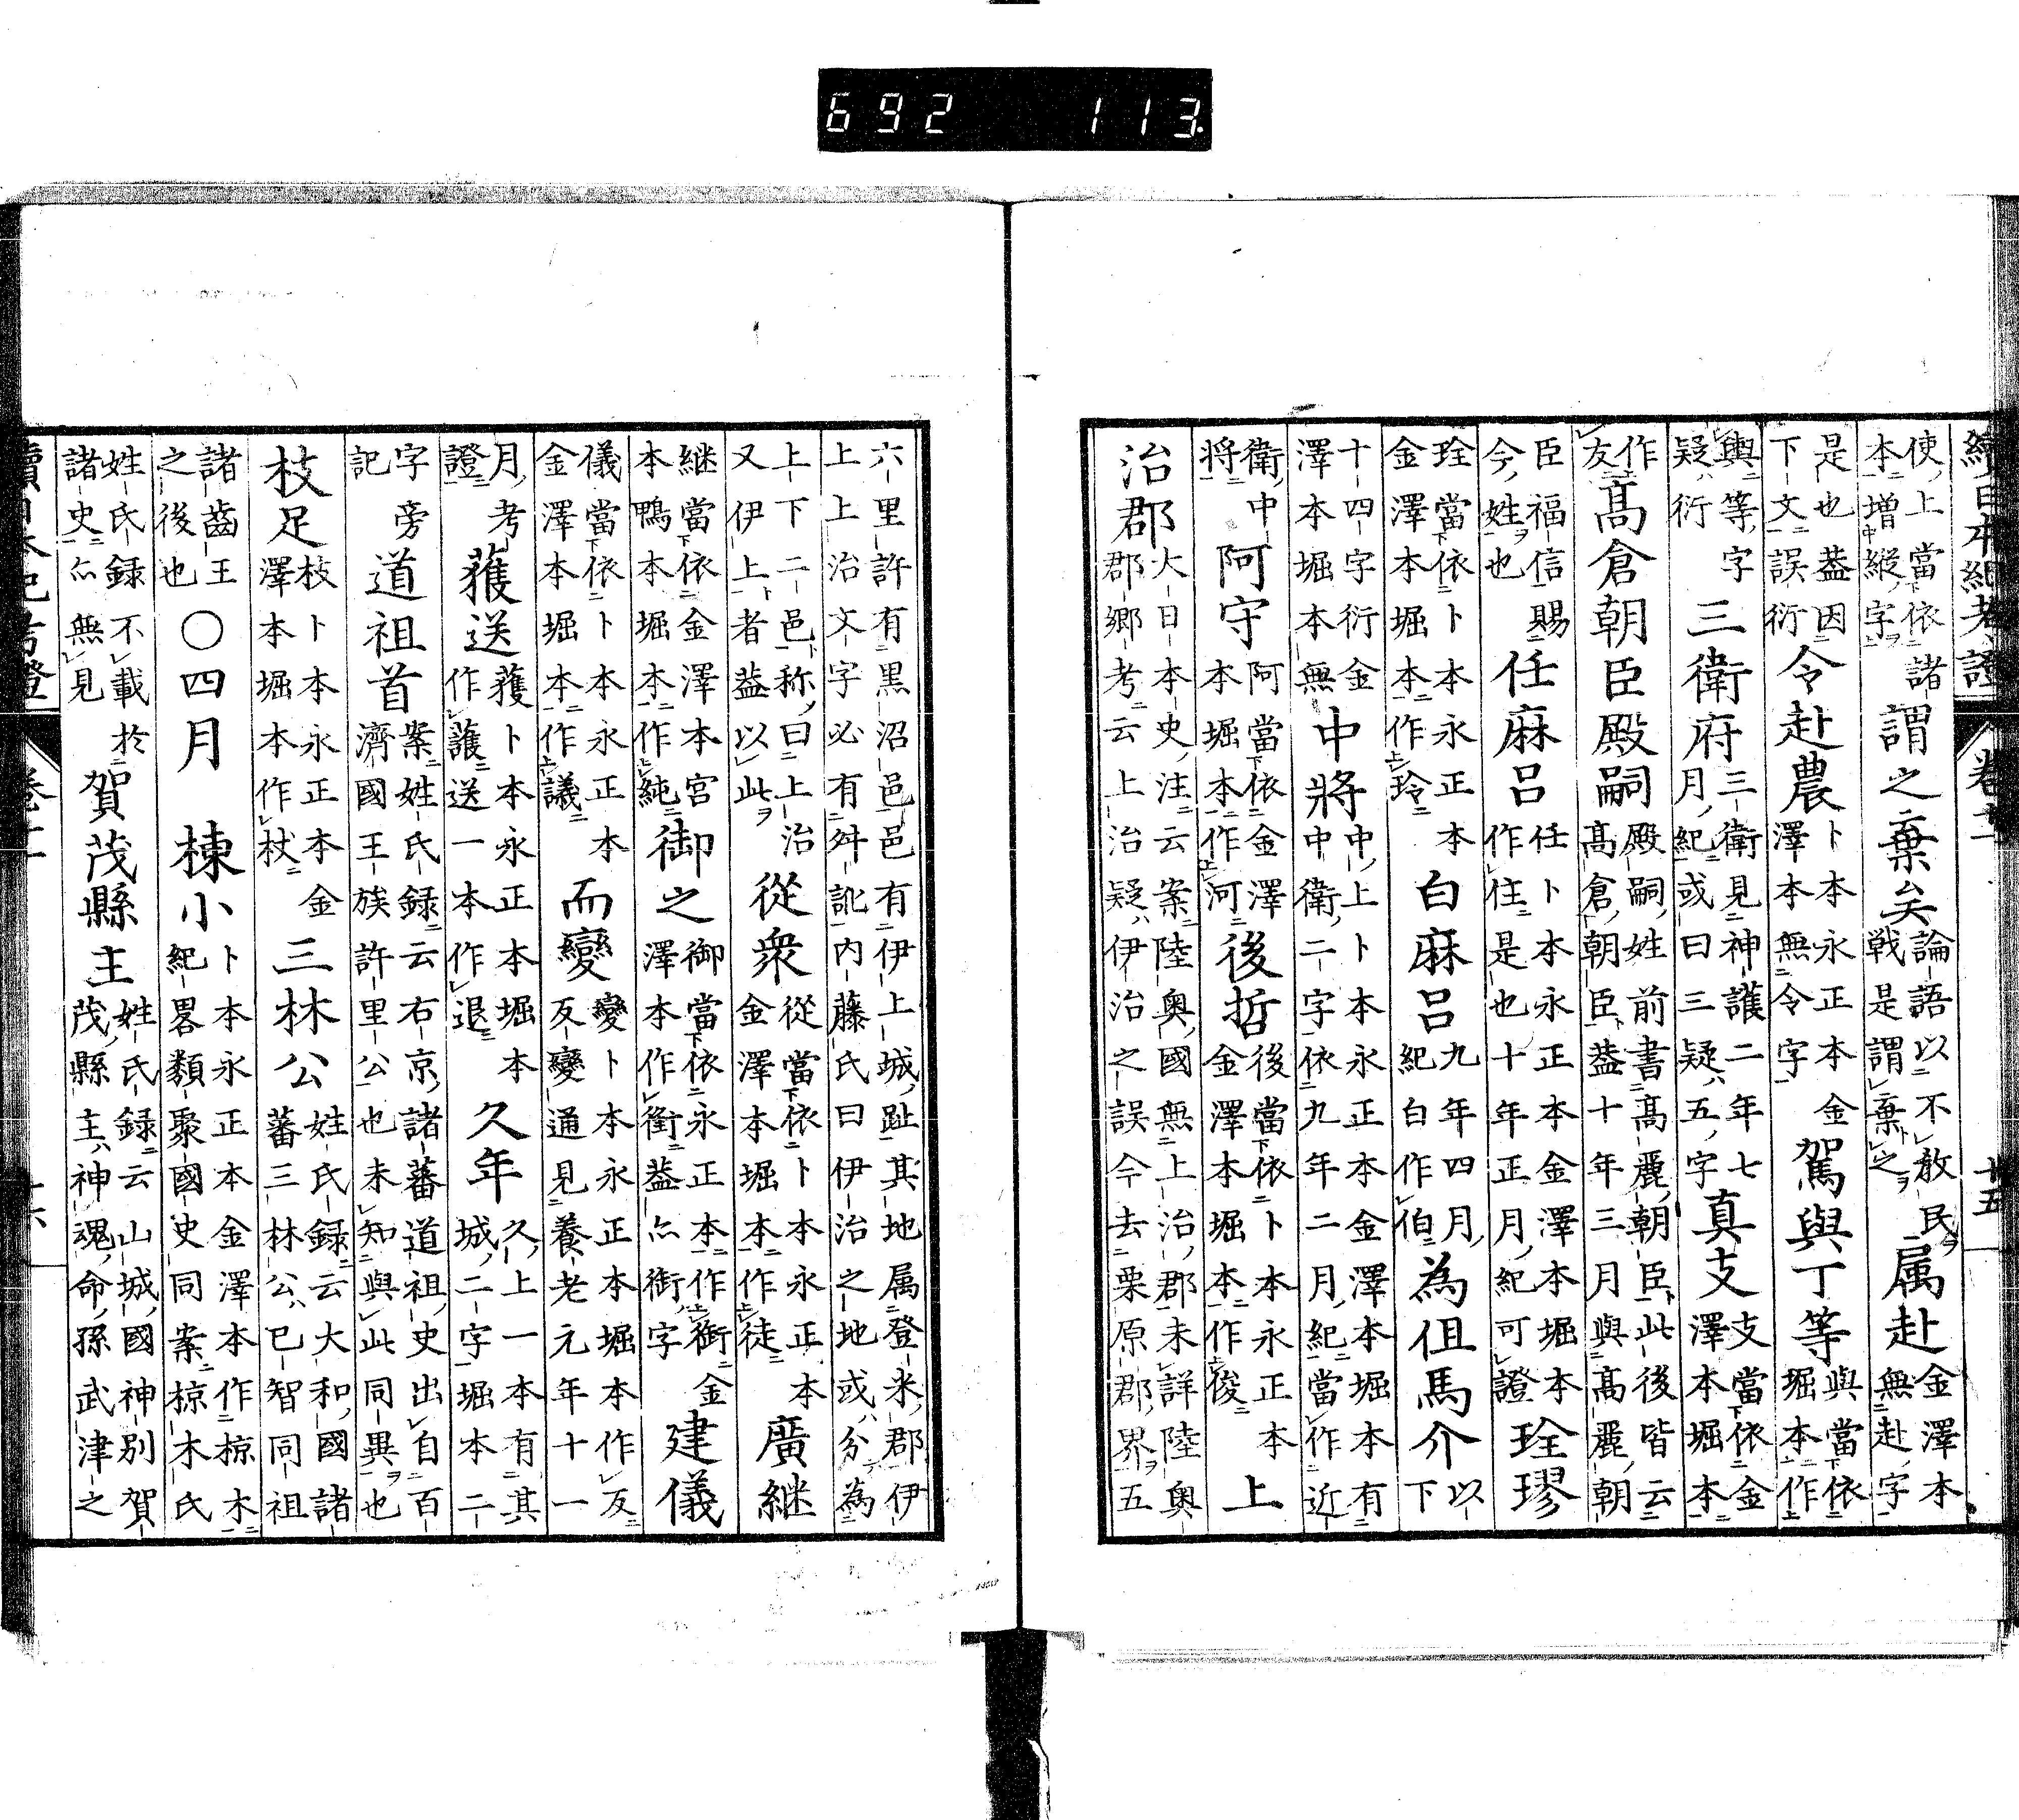 續日本紀考證 卷十一 十五
使上當依諸本增縱字謂之棄矣論語以不敎民戦是謂棄之属赴金澤本無赴字
是也葢因下文誤衍令赴農卜本永正本金澤本無令字駕與丁等與當依堀本作
輿等字疑衍三衛府三衛見神護二年七月紀或曰三疑五字真支支當依金澤本堀本
作友髙倉朝臣殿嗣殿嗣姓前書髙麗朝臣此後皆云髙倉朝臣葢十年三月與髙麗朝
臣福信賜今姓也任麻呂任卜本永正本金澤本堀本作住是也十年正月紀可證⿰王全璆
⿰王全當依卜本永正本金澤本堀本作玲白麻呂九年四月紀白作伯為伹馬介以下
十四字衍金澤本堀本無中將中上卜本永正本金澤本堀本有中衛二字依九年二月紀當作近
衛中將阿守阿當依金澤本堀本作河後哲後當依卜本永正本金澤本堀本作俊上
治郡大日本史注云案陸奥國無上治郡未詳陸奥郡郷考云上治疑伊治之誤今去栗原郡界五
六里許有黒沼邑邑有伊上城趾其地属登米郡伊上上治文字必有舛訛内藤氏曰伊治之地或分為
上下二邑称曰上治又伊上者葢以此從衆從當依卜本永正本金澤本堀本作徒廣継
継當依金澤本宮本鴨本堀本作純御之御當依永正本作銜金澤本作衝葢亦銜字建儀
儀當依卜本永正本金澤本堀本作議而變變卜本永正本堀本作反反變通見養老元年十一
月考證蒦送蒦卜本永正本堀本作護送一本作退久年久上一本有其城二字堀本二
字旁記道祖首案姓氏録云右京諸蕃道祖史出自百濟國王族許里公也未知與此同異也
枝足枝卜本永正本金澤本堀本作杖三林公姓氏録云大和國諸蕃三林公已智同祖
諸齒王之後也〇四月 棟小卜本永正本金澤本作椋木紀畧類聚國史同案椋木氏
姓氏録不載於諸史亦無見賀茂縣主姓氏録云山城國神別賀茂縣主神魂命孫武津之
續日本紀考證 卷十一 十六
692 113